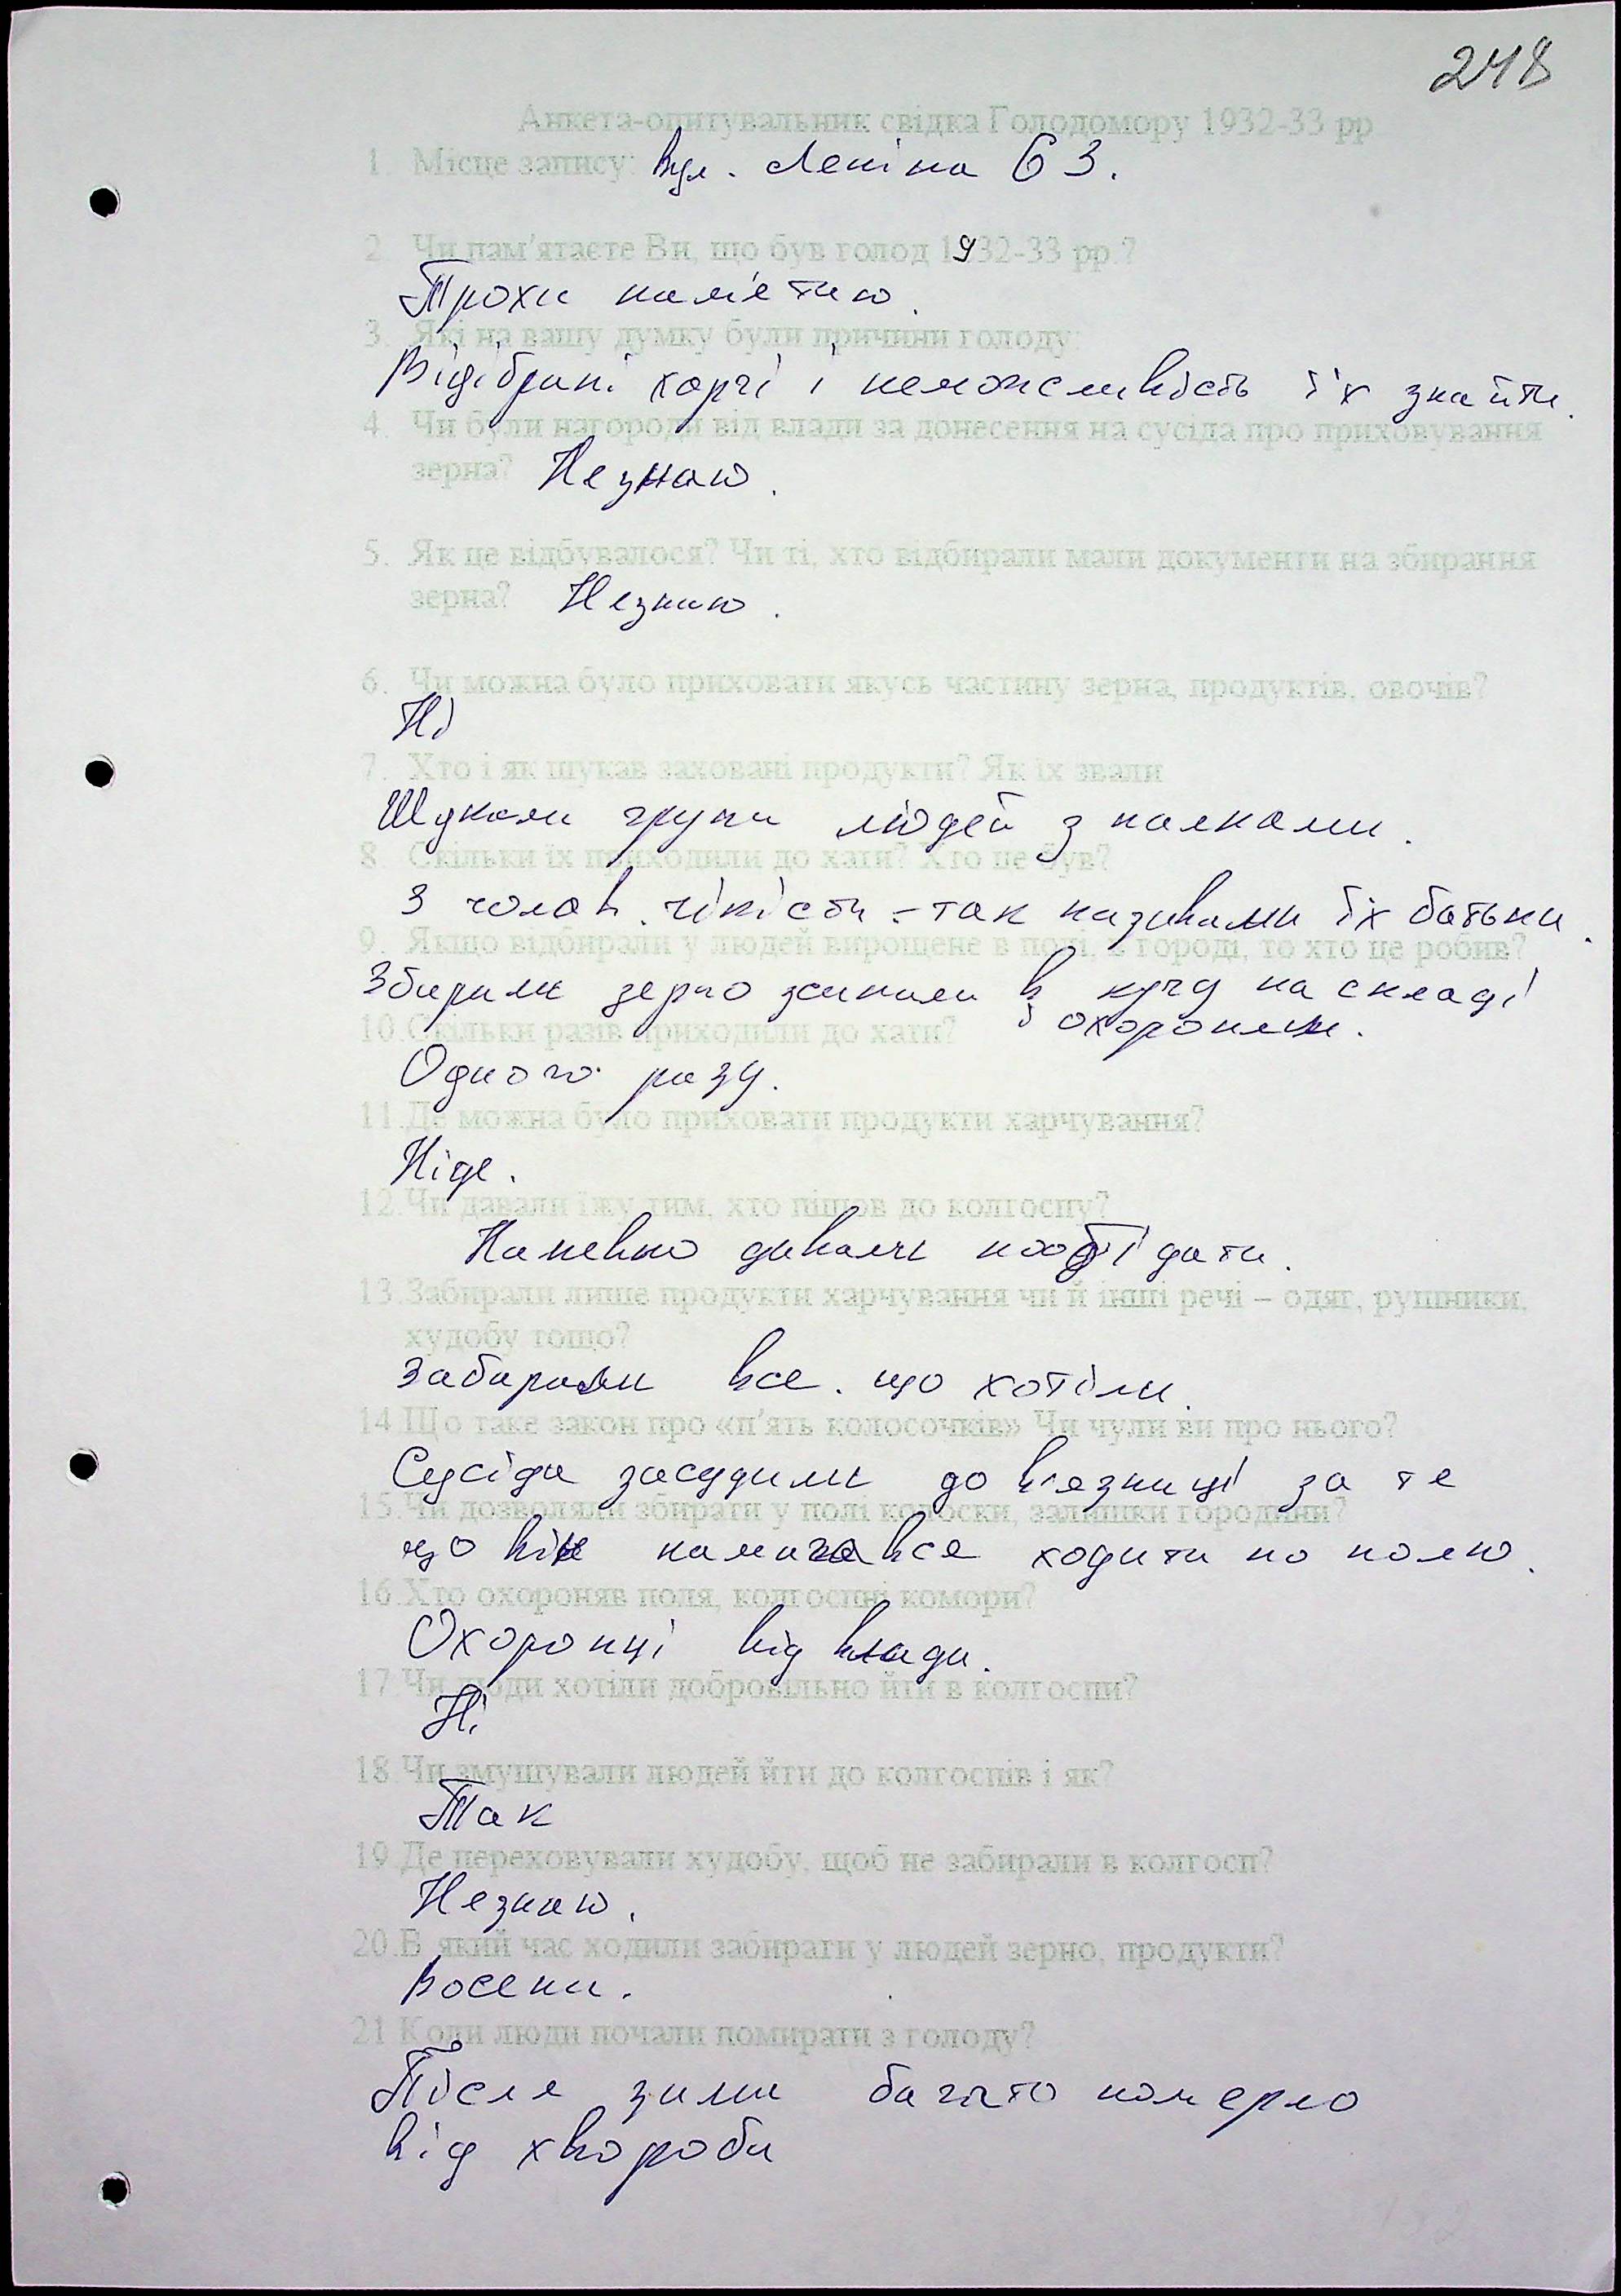 248
Анкета-опитувальник свідка Голодомору 1932-33 рр
1. Місце запису: вул. Леніна 63.
2. Чи пам'ятаєте Ви, що був голод 1932-33 рр.?
Трохи пам'ятаю.
3. Які на вашу думку були причини голоду:
Відібрані харчі і неможливість їх знайти.
4. Чи були нагороди від влади за донесення на сусіда про приховування
зерна? Незнаю.
5. Як це відбувалося? Чи ті, хто відбирали мали документи на збирання
зерна? Незнаю.
6. Чи можна було приховати якусь частину зерна, продуктів, овочів?
Ні
7. Хто і як шукав заховані продукти? Як їх звали
Шукали групи людей з палками.
8. Скільки їх приходили до хати? Хто це був?
3 чолов. - так називали їх батьки.
9. Якщо відбирали у людей вирощене в полі, в городі, то хто це робив?
Збирали зерно зсипали в кучу на складі
і охороняли.
10. Скільки разів приходили до хати?
Одного разу.
11. Де можна було приховати продукти харчування?
Ніде.
12. Чи давали їжу тим, хто пішов до колгоспу?
Напевно давали пообідати.
13. Забирали лише продукти харчування чи й інші речі – одяг, рушники,
худобу тощо?
Забирали все. що хотіли.
14. Що таке закон про «п'ять колосочків» Чи чули ви про нього?
Сусіда засудили до в'язниці за те
15. Чи дозволяли збирати у полі колоски, залишки городини?
що він намагався ходити по полю.
16. Хто охороняв поля, колгоспні комори?
Охоронці від влади.
17. Чи люди хотіли добровільно йти в колгоспи?
Ні
18. Чи змушували людей йти до колгоспів і як?
Так
19. Де переховували худобу, щоб не забирали в колгосп?
Незнаю.
20. В який час ходили забирати у людей зерно, продукти?
Восени.
21. Коли люди почали помирати з голоду?
Після зими багато померло
від хвороби